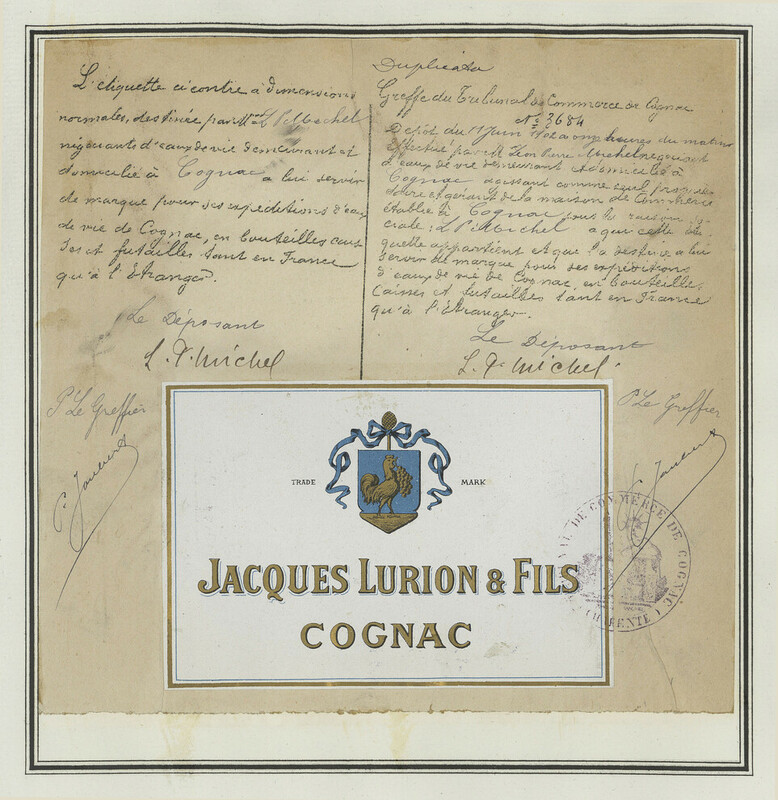 L'étiquette ci contre à dimensions
normales, destinée par M L P Michel
négociants d'eaux de vie demeurant et
domicilié à Cognac a lui servir
de marque pour ses expéditions d'eaux
de vie de Cognac, en bouteilles cais
ses et futailles tant en France
qu'à l'Étranger.
Le Déposant
L. P. Michel
P Le Greffier
Duplicata
Greffe du Tribunal de Commerce de Cognac
No 3684
Dépôt du 11 Juin à onze heures du matin
effectué par M Léon Pierre Michel négociant
d'eaux de vie demeurant et domicilié à
Cognac agissant comme seul proprié
taire et gérant de la maison de Commerce
établie à Cognac sous la raison so
ciale: L P Michel a qui cette éti
quette appartient et que l'a destine a lui
servir de marque pour ses expéditions
d'eaux de vie de Cognac, en bouteilles,
Caisses et futailles tant en France
qu'à l'Étranger.
Le Déposant
L. P. Michel
P Le Greffier
TRADE MARK
JACQUES LURION & FILS
COGNAC
DE COMMERCE DE COGNAC